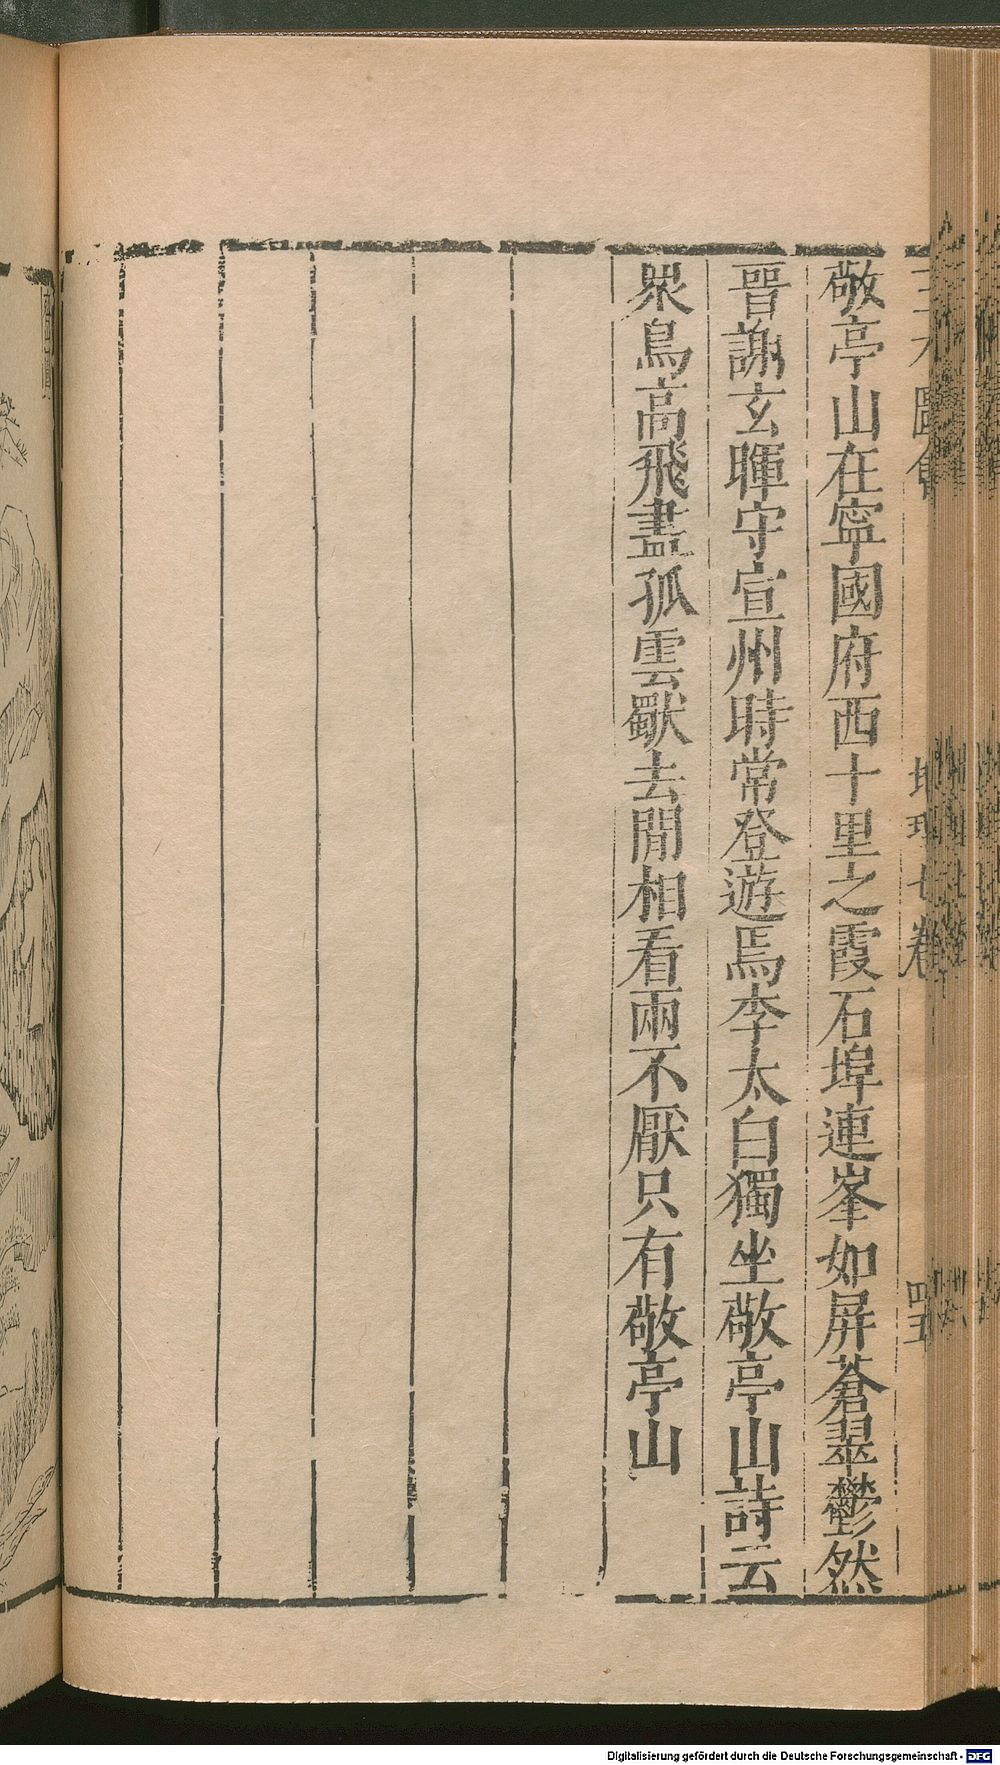 三才圖會
地理七卷
四五
敬亭山在寧國府西十里之霞石埠連峯如屏蒼翠鬱然
晉謝玄暉守宣州時常登遊焉李太白獨坐敬亭山詩云
衆鳥高飛盡孤雲獸去閒相看兩不厭只有敬亭山
Digitalisierung gefördert durch die Deutsche Forschungsgemeinschaft - DFG